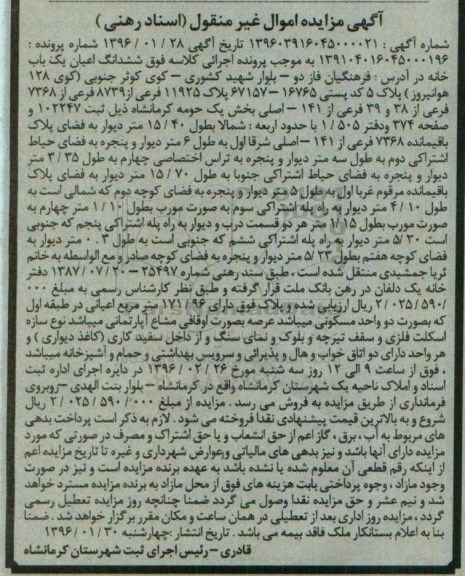 آگهی مزایده اموال غیر منقول (اسناد رهنی)
شماره آگهی : ۱۳۹۶۰۳۹۱۶۰۴۵۰۰۰۰۲۱ تاریخ آگهی ۲۸ / ۰۱ / ۱۳۹۶ شماره پرونده :
۱۳۹۱۰۴۰۱۶۰۴۵۰۰۰۱۹۶ به موجب پرونده اجرائی کلاسه فوق ششدانگ اعیان یک باب
خانه در آدرس : فرهنگیان فاز دو – بلوار شهید کشوری – کوی کوثر جنوبی (کوی ۱۲۸
هوانیروز) پلاک ۵ کد پستی ۱۶۷۶۵ – ۶۷۱۵۷ پلاک ۱۱۹۲۵ فرعی از ۸۷۳۹ فرعی از ۷۳۶۸
فرعی از ۳۸ و ۳۹ فرعی از ۱۴۱ – اصلی بخش یک حومه کرمانشاه ذیل ثبت ۱۰۲۲۴۷ و
صفحه ۳۷۴ ودفتر ۵۰۵ / ۱ با حدود اربعه : شمالا بطول ۴۰ / ۱۵ متر دیوار به فضای پلاک
باقیمانده ۷۳۶۸ فرعی از ۱۴۱ – اصلی شرقا اول به طول ۶ متر دیوار و پنجره به فضای حیاط
اشتراکی دوم به طول سه متر دیوار و پنجره به تراس اختصاصی چهارم به طول ۳۵ / ۳ متر
دیوار و پنجره به فضای حیاط اشتراکی جنوبا به طول ۷۰ / ۱۵ متر دیوار به فضای پلاک
باقیمانده مرقوم غربا اول به طول ۵ متر دیوار و پنجره به فضای کوچه دوم که شمالی است به
طول ۱۰ / ۴ متر دیوار به راه پله اشتراکی سوم به صورت مورب بطول ۱۰ / ۱ متر چهارم به
صورت مورب بطول ۱/۱۵ متر هر دو قسمت درب و دیوار به راه پله اشتراکی پنجم که جنوبی
است ۵/۳۰ متر دیوار به راه پله اشتراکی ششم که جنوبی است به طول ۰.۳ متر دیوار به
فضای کوچه هفتم بطول ۵/۲۳ متر دیوار و پنجره به فضای کوچه صادر و مع الواسطه به خانم
ثریا جمشیدی منتقل شده است ، طبق سند رهنی شماره ۲۵۴۹۷ – ۲۰ / ۰۷ / ۱۳۸۷ دفتر
خانه یک دلفان در رهن بانک ملت قرار گرفته و طبق نظر کارشناس رسمی به مبلغ ۰۰۰
/ ۵۹۰ / ۰۲۵ / ۲ ریال ارزیابی شده و پلاک فوق دارای ۹۶ / ۱۷۱ متر مربع اعیانی در طبقه اول
که بصورت دو واحد مسکونی میباشد عرصه بصورت اوقافی مشاع آپارتمانی میباشد نوع سازه
اسکلت فلزی و سقف تیرچه و بلوک و نمای سنگ و از داخل سفید کاری (کاغذ دیواری ) و
هر واحد دارای دو اتاق خواب و هال و پذیرائی و سرویس بهداشتی و حمام و آشپزخانه میباشد
، فوق از ساعت ۹ الی ۱۲ روز سه شنبه مورخ ۲۶ / ۰۲ / ۱۳۹۶ در دایره اجرای اداره ثبت
اسناد و املاک ناحیه یک شهرستان کرمانشاه واقع در کرمانشاه – بلوار بنت الهدی – روبروی
فرمانداری از طریق مزایده به فروش می رسد . مزایده از مبلغ ۰۰۰/ ۵۹۰ / ۰۲۵ / ۲ ریال
شروع و به بالاترین قیمت پیشنهادی نقدا فروخته می شود . لازم به ذکر است پرداخت بدهی
های مربوط به آب ، برق ، گاز اعم از حق انشعاب و یا حق اشتراک و مصرف در صورتی که مورد
مزایده دارای آنها باشد و نیز بدهی های مالیاتی وعوارض شهرداری و غیره تا تاریخ مزایده اعم
از اینکه رقم قطعی آن معلوم شده یا نشده باشد به عهده برنده مزایده است و نیز در صورت
وجود مازاد ، وجوه پرداختی بابت هزینه های فوق از محل مازاد به برنده مزایده مسترد خواهد
شد و نیم عشر و حق مزایده نقدا وصول می گردد ضمنا چنانچه روز مزایده تعطیل رسمی
گردد ، مزایده روز اداری بعد از تعطیلی در همان ساعت و مکان مقرر برگزار خواهد شد . ضمنا
بنا به اعلام بستانکار ملک فاقد بیمه می باشد . تاریخ انتشار :چهارشنبه ۳۰ / ۰۱ / ۱۳۹۶
قادری – رئیس اجرای ثبت شهرستان کرمانشاه